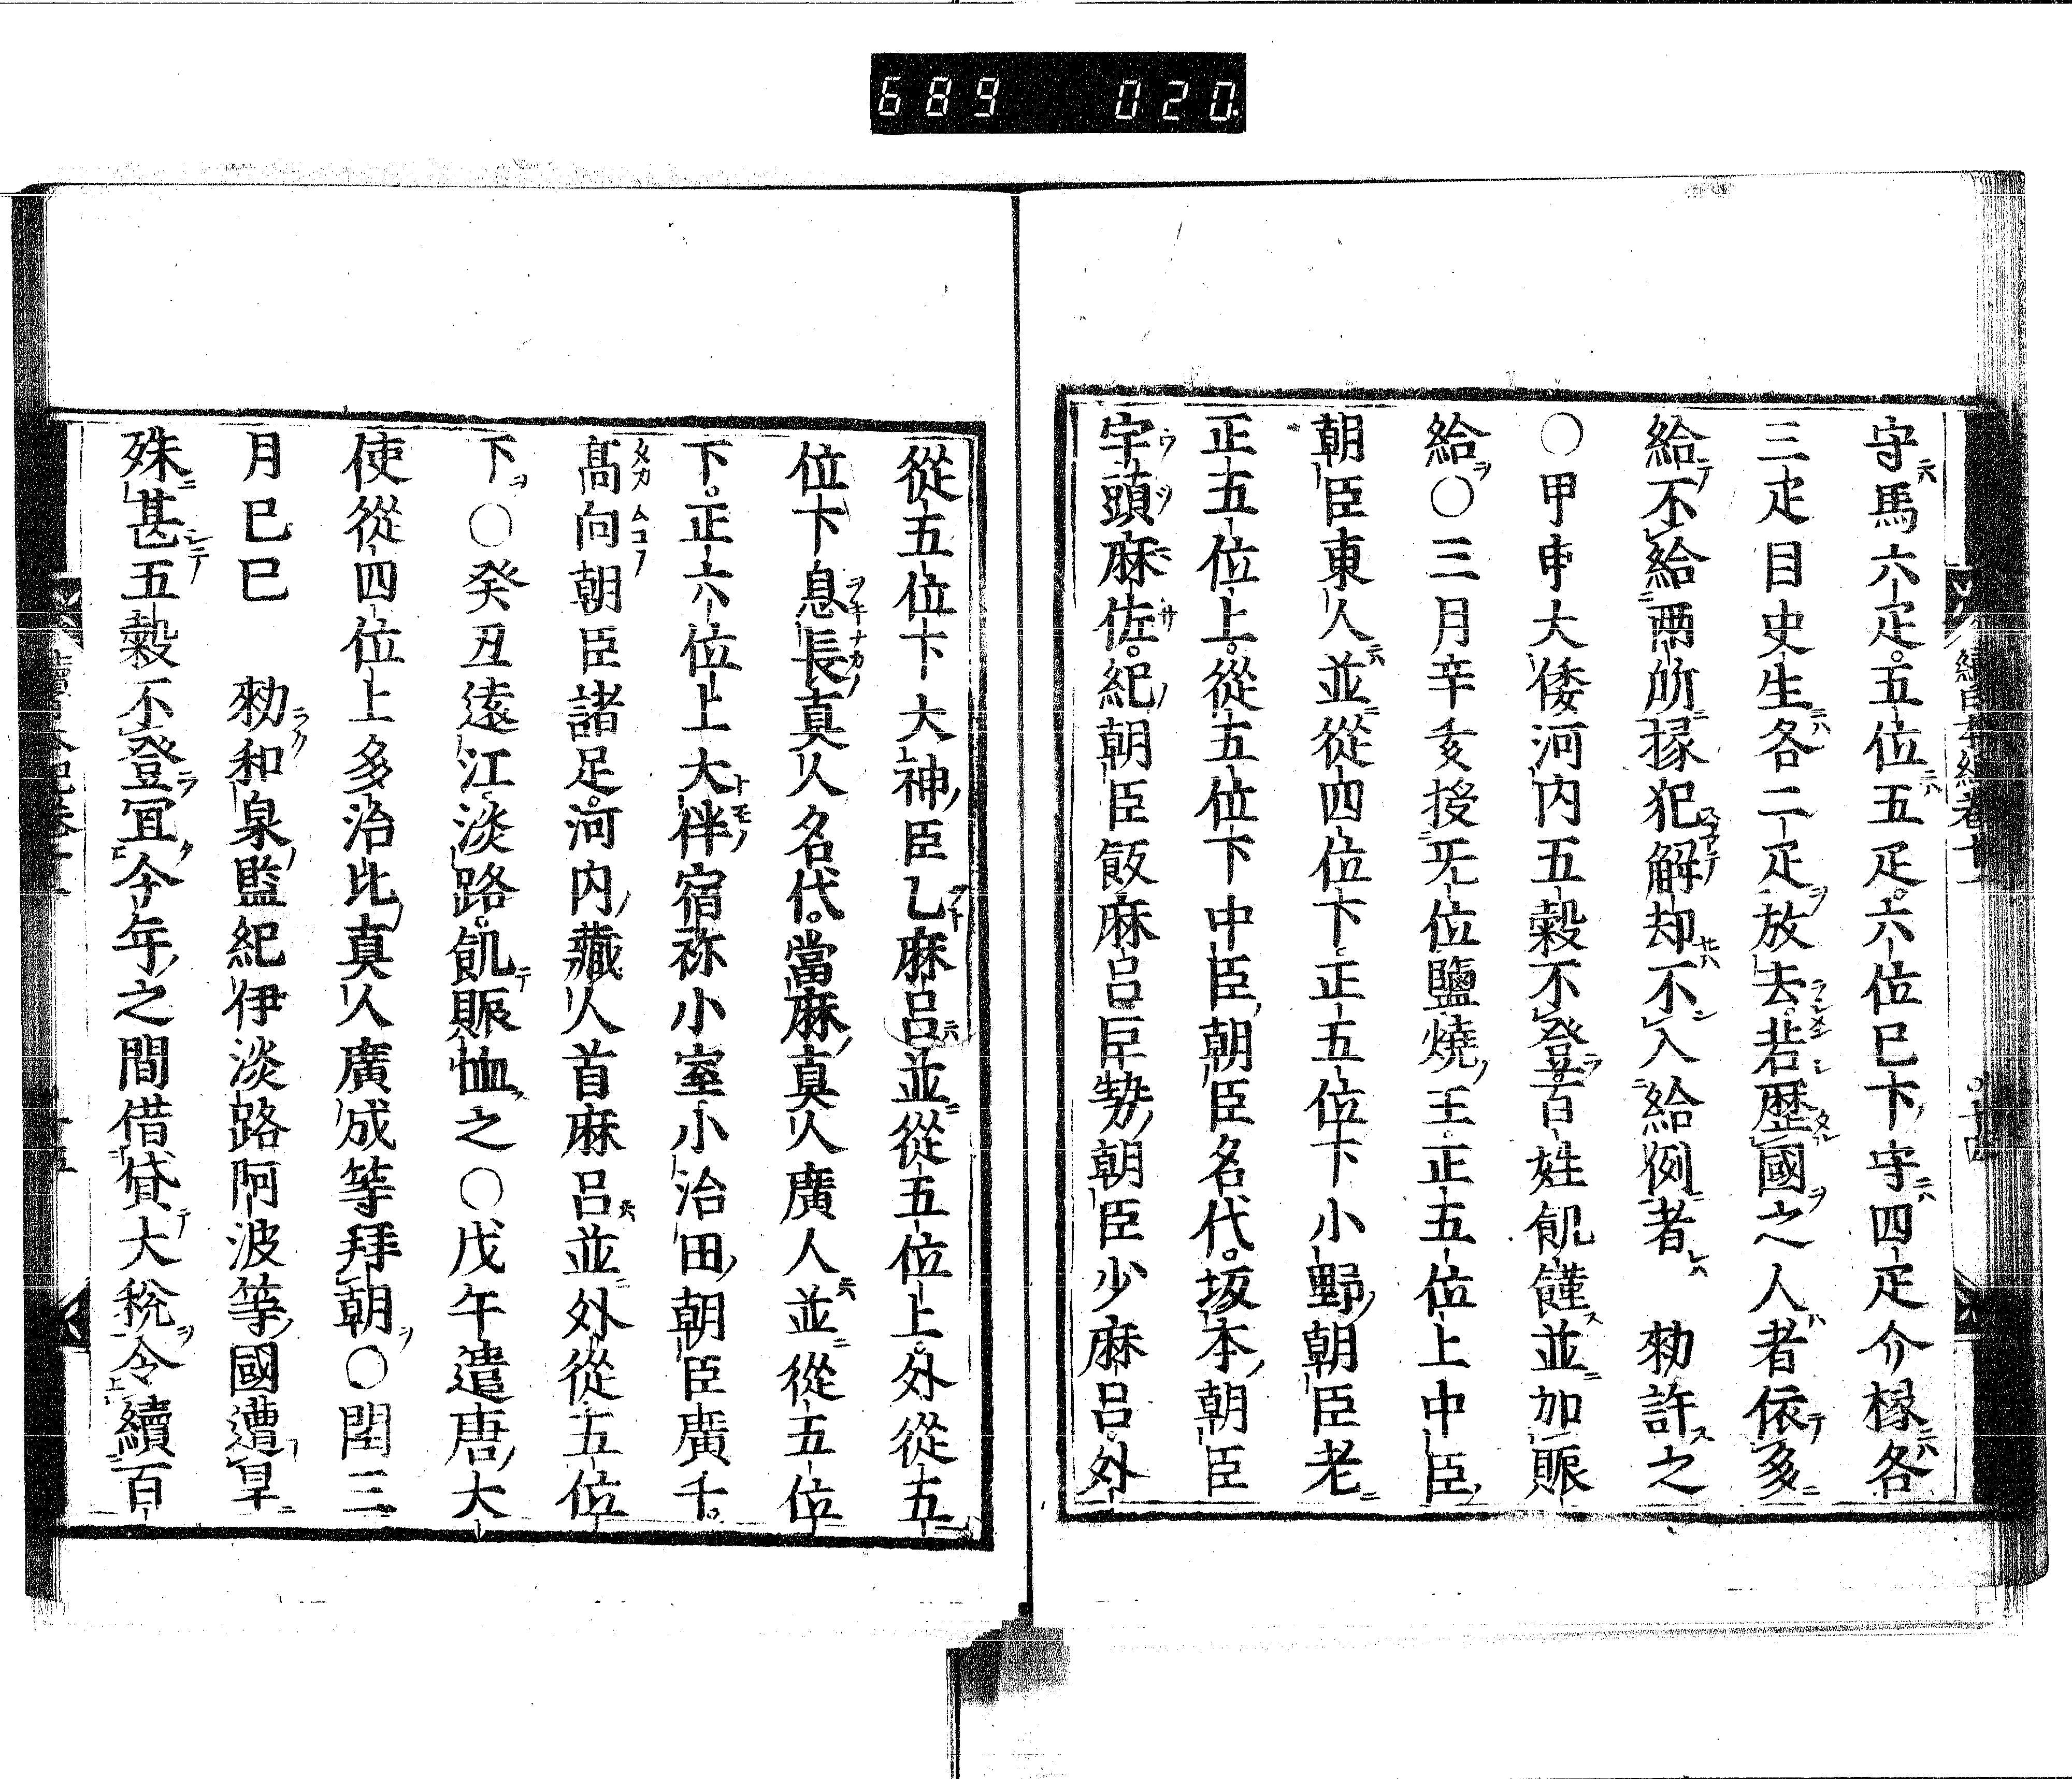 689 020
守馬六疋。五位五疋。六位已下守四疋介掾各
三疋目史生各二疋放去。若歷國之人者依多
給不給兩所掾犯解却不入給例者　勅許之
○甲申大倭河內五穀不登百姓飢饉並加賑
給○三月辛亥授无位鹽燒王正五位上中臣
朝臣東人並從四位下正五位下小野朝臣老
正五位上。從五位下中臣朝臣名代。坂本朝臣
宇頭麻佐。紀朝臣飯麻呂巨勢朝臣少麻呂。外
從五位下大神臣乙麻呂並從五位上。外從五
位下息長真人名代。當麻真人廣人並從五位
下。正六位上大伴宿祢小室小治田朝臣廣千。
髙向朝臣諸足。河內藏人首麻呂並外從五位
下○癸丑遠江淡路。飢賑恤之○戊午遣唐大
使從四位上多治比真人廣成等拜朝○閏三
月己巳　勅和泉監紀伊淡路阿波等國遭旱
殊甚五穀不登冝今年之間借貸大稅令續百